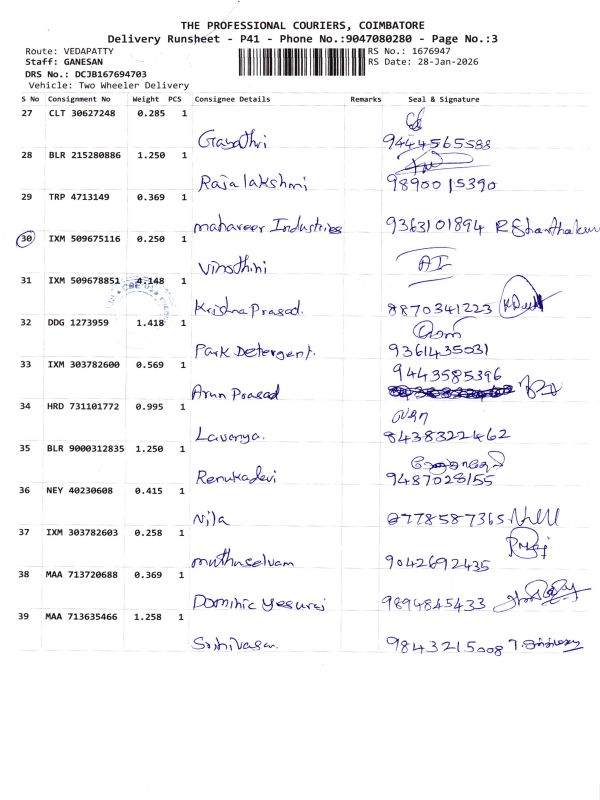 THE PROFESSIONAL COURIERS, COIMBATORE
Delivery Runsheet - P41 - Phone No.:9047080280 - Page No.:3
Route: VEDAPATTY RS No.: 1676947
Staff: GANESAN RS Date: 28-Jan-2026
DRS No.: DCJB167694703
Vehicle: Two Wheeler Delivery
S No Consignment No Weight PCS Consignee Details Remarks Seal & Signature
27 CLT 30627248 0.285 1
Gayathri 9444565588
28 BLR 215280886 1.250 1
Rajalakshmi 9890015390
29 TRP 4713149 0.369 1
mahaveer Industries 9363101894
30 IXM 509675116 0.250 1
Vinothini
31 IXM 509678851 4.148 1
Krishna Prasad. 8870341223
32 DDG 1273959 1.418 1
Park Detergent. 9361435031
33 IXM 303782600 0.569 1
9443585396
Arun Prasad
34 HRD 731101772 0.995 1
Lavanya. 8438322462
35 BLR 9000312835 1.250 1
Renukadevi 9487028155
36 NEY 40230608 0.415 1
Nila
37 IXM 303782603 0.258 1
muthuselvam 9042692435
38 MAA 713720688 0.369 1
Dominic Yesuraj 9894845433
39 MAA 713635466 1.258 1
Srinivasan. 9843215008